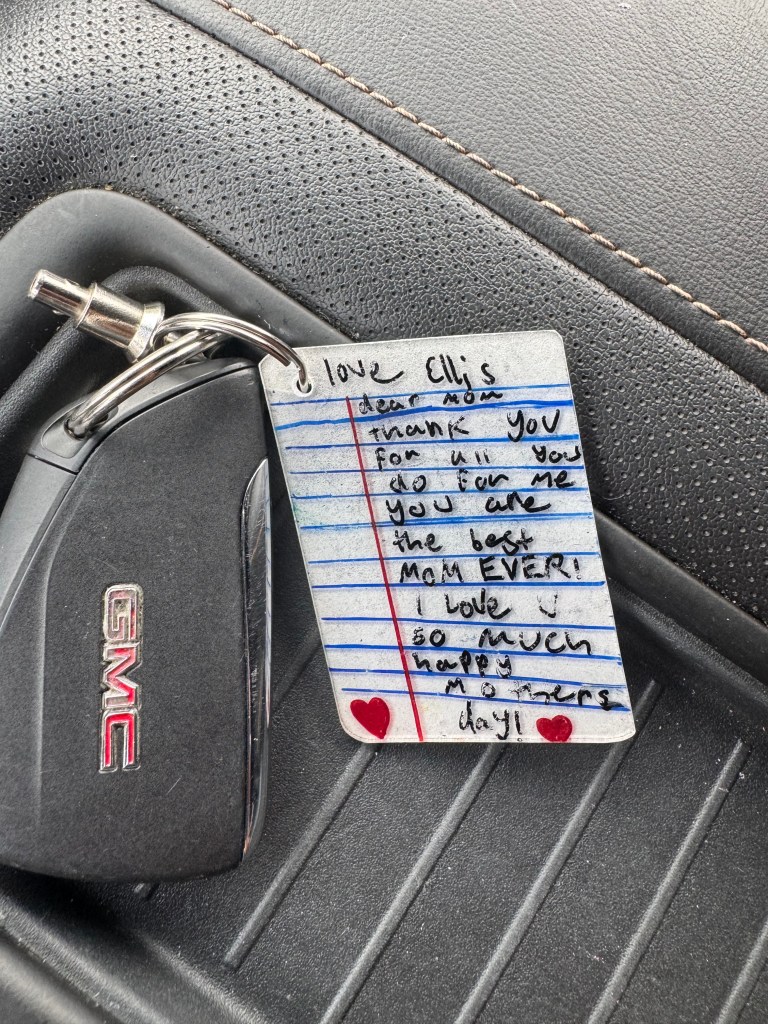 love Ellis
dear mom
thank you
for all you
do for me
you are
the best
MOM EVER!
I Love U
so much
happy
Mothers
day!
GMC